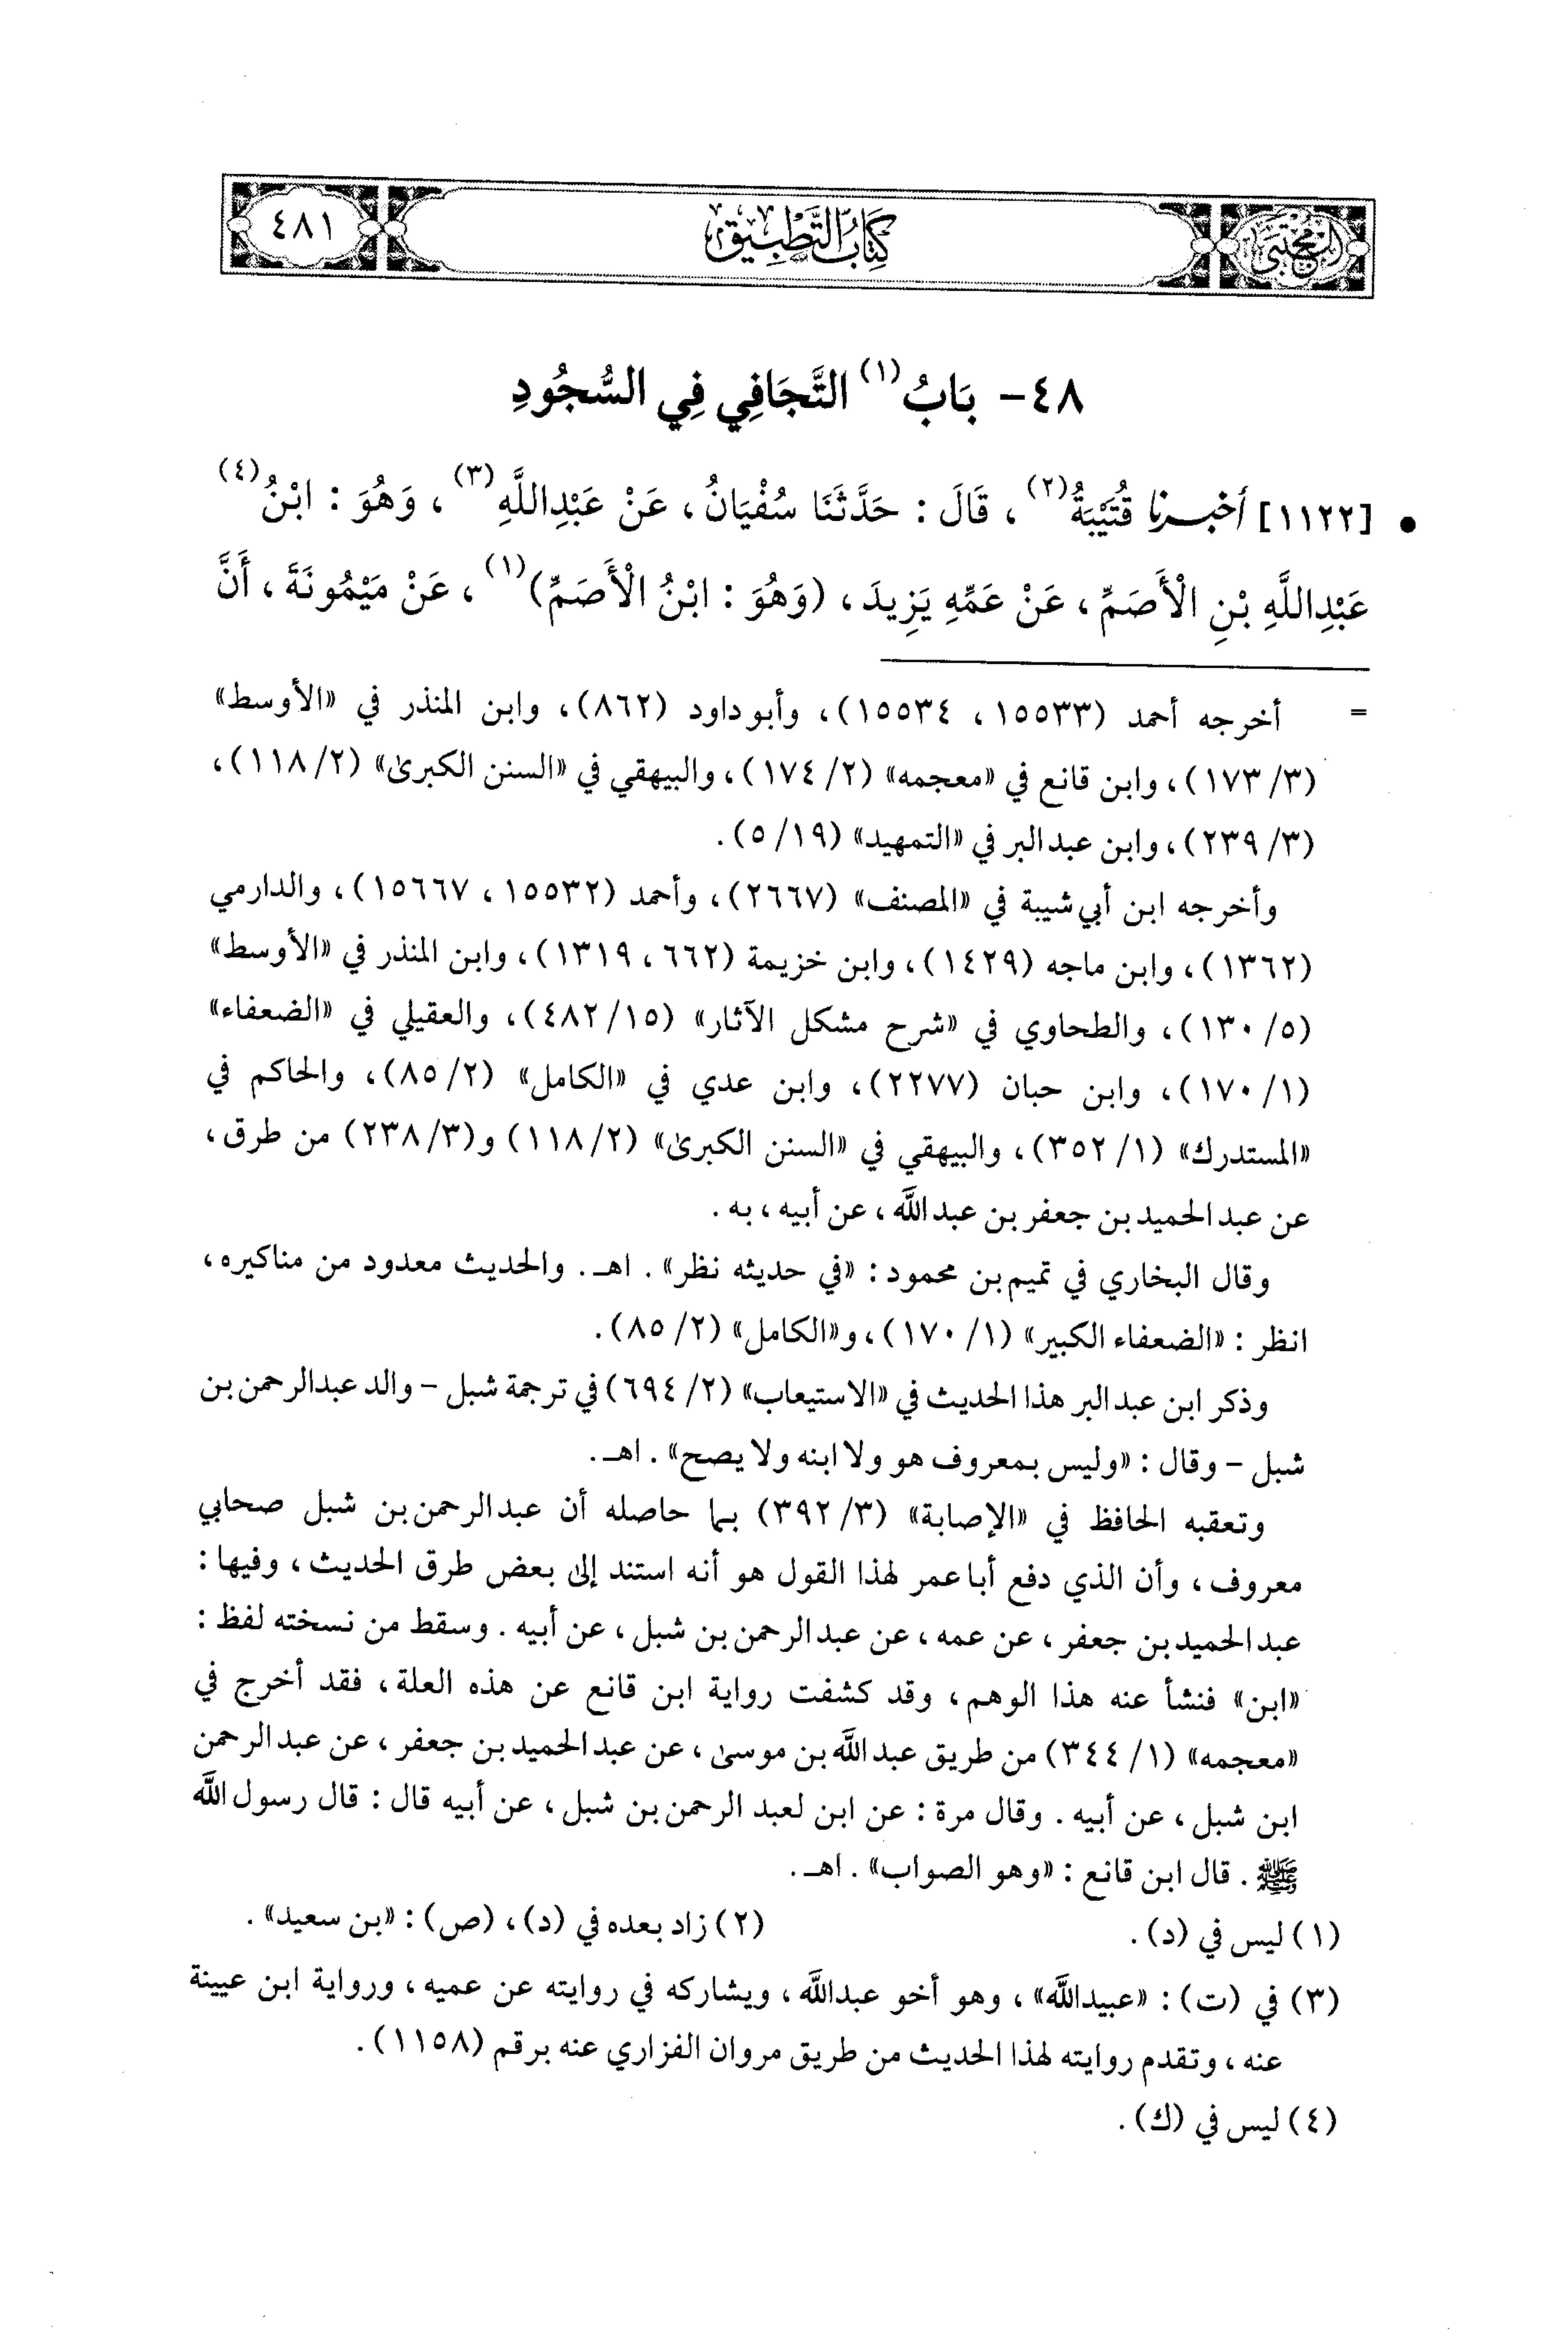 السنن المجتبى
كتاب التطبيق
٤٨١
٤٨- بَابُ (١) التَّجَافِي فِي السُّجُودِ
• [١١٢٢] أخبرنا قُتَيْبَةُ (٢) ، قَالَ : حَدَّثَنَا سُفْيَانُ ، عَنْ عَبْدِاللَّهِ (٣) ، وَهُوَ : ابْنُ (٤)
عَبْدِاللَّهِ بْنِ الْأَصَمِّ ، عَنْ عَمِّهِ يَزِيدَ ، (وَهُوَ : ابْنُ الْأَصَمِّ) (١) ، عَنْ مَيْمُونَةَ ، أَنَّ
= أخرجه أحمد (١٥٥٣٣ ، ١٥٥٣٤)، وأبو داود (٨٦٢)، وابن المنذر في «الأوسط»
(٣/ ١٧٣)، وابن قانع في «معجمه» (٢/ ١٧٤)، والبيهقي في «السنن الكبرى» (٢/ ١١٨)،
(٣/ ٢٣٩)، وابن عبدالبر في «التمهيد» (١٩/ ٥).
وأخرجه ابن أبي شيبة في «المصنف» (٢٦٦٧)، وأحمد (١٥٥٣٢ ، ١٥٦٦٧)، والدارمي
(١٣٦٢)، وابن ماجه (١٤٢٩)، وابن خزيمة (٦٦٢ ، ١٣١٩)، وابن المنذر في «الأوسط»
(٥/ ١٣٠)، والطحاوي في «شرح مشكل الآثار» (١٥/ ٤٨٢)، والعقيلي في «الضعفاء»
(١/ ١٧٠)، وابن حبان (٢٢٧٧)، وابن عدي في «الكامل» (٢/ ٨٥)، والحاكم في
«المستدرك» (١/ ٣٥٢)، والبيهقي في «السنن الكبرى» (٢/ ١١٨) و(٣/ ٢٣٨) من طرق ،
عن عبدالحميد بن جعفر بن عبدالله ، عن أبيه ، به .
وقال البخاري في تميم بن محمود : «في حديثه نظر» . اهـ . والحديث معدود من مناكيره ،
انظر : «الضعفاء الكبير» (١/ ١٧٠)، و«الكامل» (٢/ ٨٥).
وذكر ابن عبدالبر هذا الحديث في «الاستيعاب» (٢/ ٦٩٤) في ترجمة شبل - والد عبدالرحمن بن
شبل - وقال : «وليس بمعروف هو ولا ابنه ولا يصح» . اهـ .
وتعقبه الحافظ في «الإصابة» (٣/ ٣٩٢) بما حاصله أن عبدالرحمن بن شبل صحابي
معروف ، وأن الذي دفع أبا عمر لهذا القول هو أنه استند إلى بعض طرق الحديث ، وفيها :
عبدالحميد بن جعفر ، عن عمه ، عن عبدالرحمن بن شبل ، عن أبيه . وسقط من نسخته لفظ :
«ابن» فنشأ عنه هذا الوهم ، وقد كشفت رواية ابن قانع عن هذه العلة ، فقد أخرج في
«معجمه» (١/ ٣٤٤) من طريق عبدالله بن موسى ، عن عبدالحميد بن جعفر ، عن عبدالرحمن
ابن شبل ، عن أبيه . وقال مرة : عن ابن لعبد الرحمن بن شبل ، عن أبيه قال : قال رسول الله
ﷺ . قال ابن قانع : «وهو الصواب» . اهـ .
(١) ليس في (د) . (٢) زاد بعده في (د)، (ص) : «بن سعيد» .
(٣) في (ت) : «عبيدالله» ، وهو أخو عبدالله ، ويشاركه في روايته عن عميه ، ورواية ابن عيينة
عنه ، وتقدم روايته لهذا الحديث من طريق مروان الفزاري عنه برقم (١١٥٨).
(٤) ليس في (ك) .